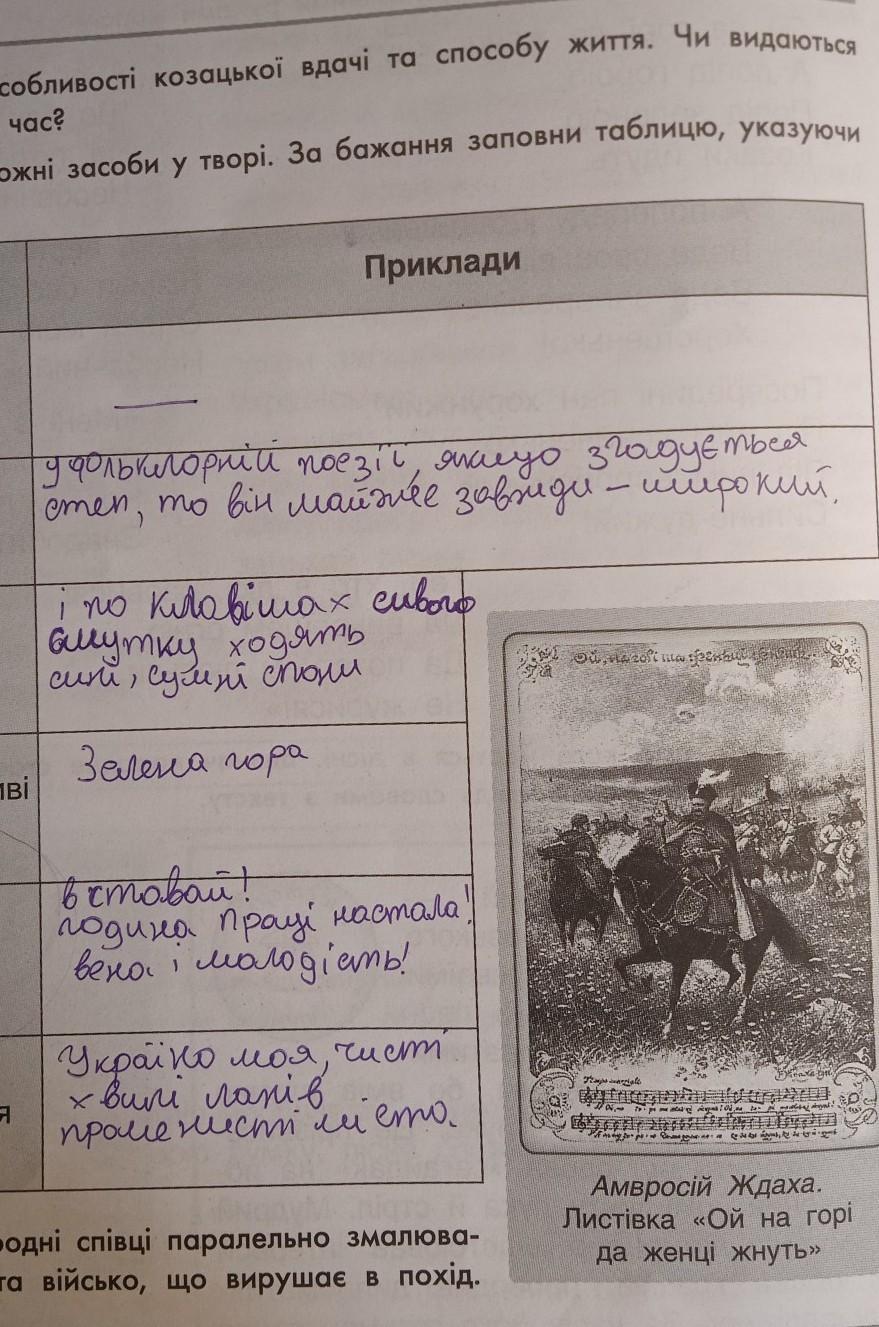 собливості козацької вдачі та способу життя. Чи видаються
час?
ожні засоби у творі. За бажання заповни таблицю, указуючи
Приклади
—
у фольклорній поезії, якщо згадується
степ, то він майже завжди – широкий.
і по клавішах сивого
смутку ходять
сині, сумні спони
Зелена гора
иві
вставай!
година праці настала!
весна і молодість!
Україно моя, чисті
хвилі ланів
променисті місто.
я
родні співці паралельно змалюва-
та військо, що вирушає в похід.
Ой, на горі та женці жнуть...
Амвросій Ждаха.
Листівка «Ой на горі
да женці жнуть»